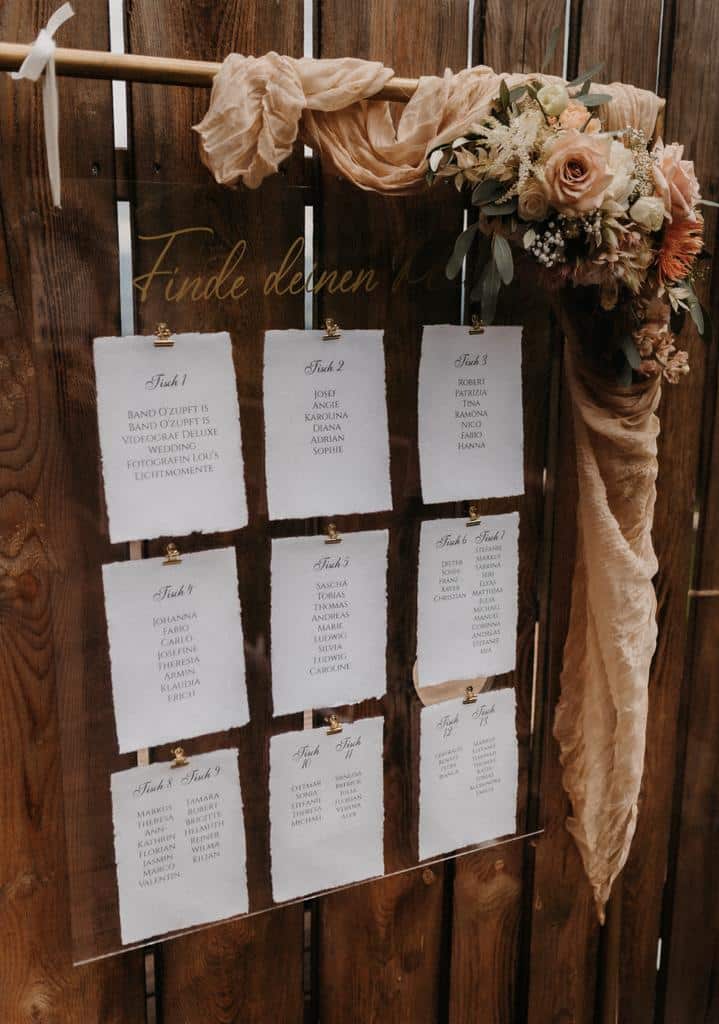 Finde deinen
Tisch 1
Band O'zupft is
Band O'zupft is
Videograf Deluxe
Wedding
Fotografin Lou's
Lichtmomente
Tisch 2
Josef
Angie
Karolina
Diana
Adrian
Sophie
Tisch 3
Robert
Patrizia
Tina
Ramona
Nico
Fabio
Hanna
Tisch 4
Johanna
Fabio
Carlo
Josefine
Theresia
Armin
Klaudia
Erich
Tisch 5
Sascha
Tobias
Thomas
Andreas
Marie
Ludwig
Silvia
Ludwig
Caroline
Tisch 6
Dieter
Franz
Xaver
Christian
Tisch 7
Stefanie
Markus
Sabrina
Elias
Matthias
Julia
Michael
Manuel
Corinna
Andreas
Stefanie
Mia
Tisch 8
Markus
Theresa
Ann-
Kathrin
Florian
Jasmin
Marco
Valentin
Tisch 9
Tamara
Robert
Brigitte
Helmuth
Reiner
Wilma
Kilian
Tisch
10
Ottmar
Sonja
Stefanie
Theresa
Michael
Tisch
11
Patrick
Julia
Florian
Verena
Alex
Tisch
12
Petra
Bianca
Tisch
13
Markus
Stefanie
Thomas
Tobias
Alexandra
Emilia